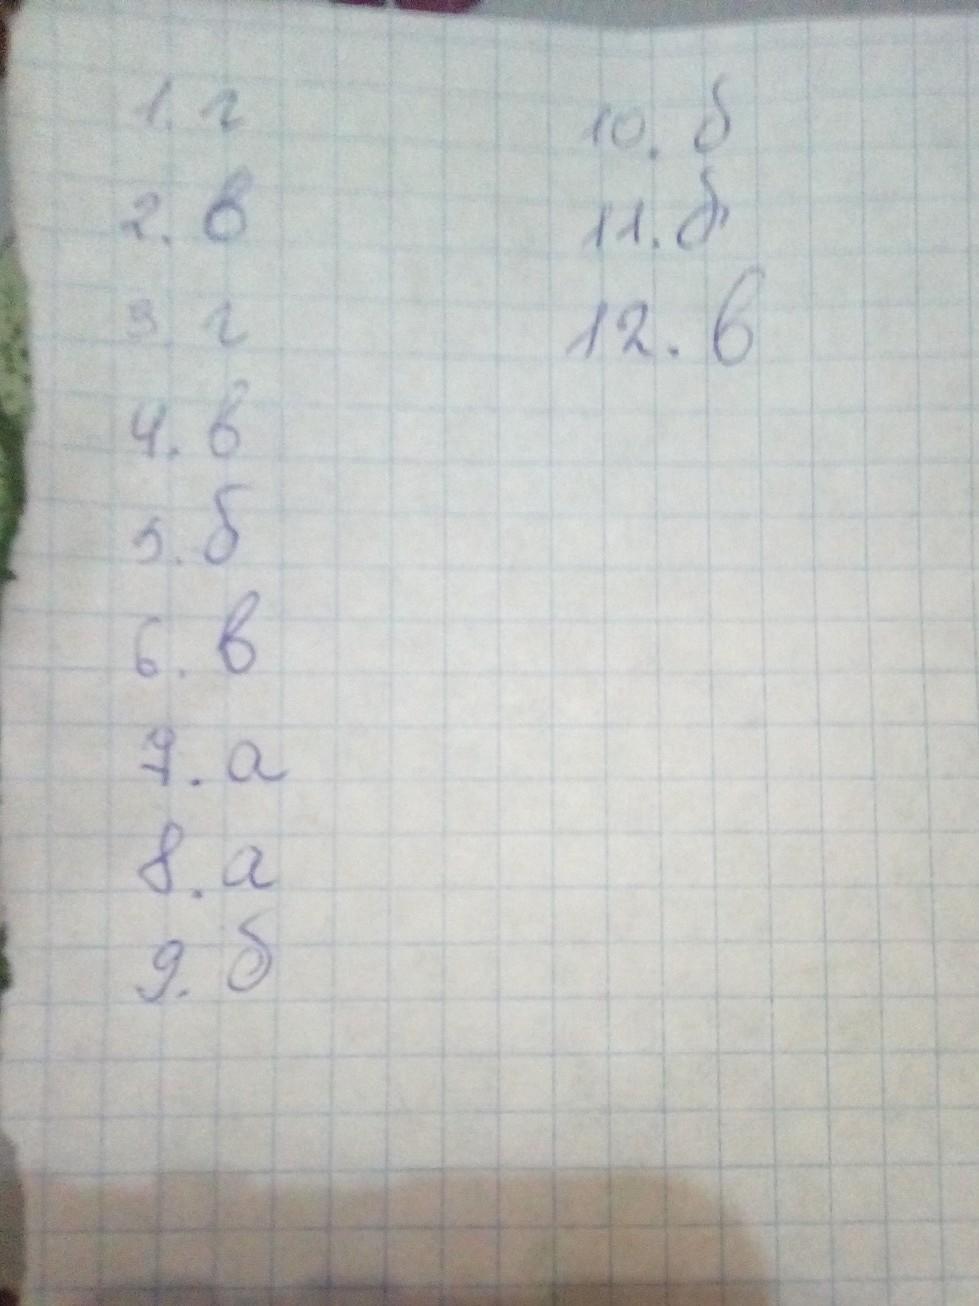 1. г
2. в
3. г
4. в
5. б
6. в
7. а
8. а
9. б
10. б
11. б
12. в